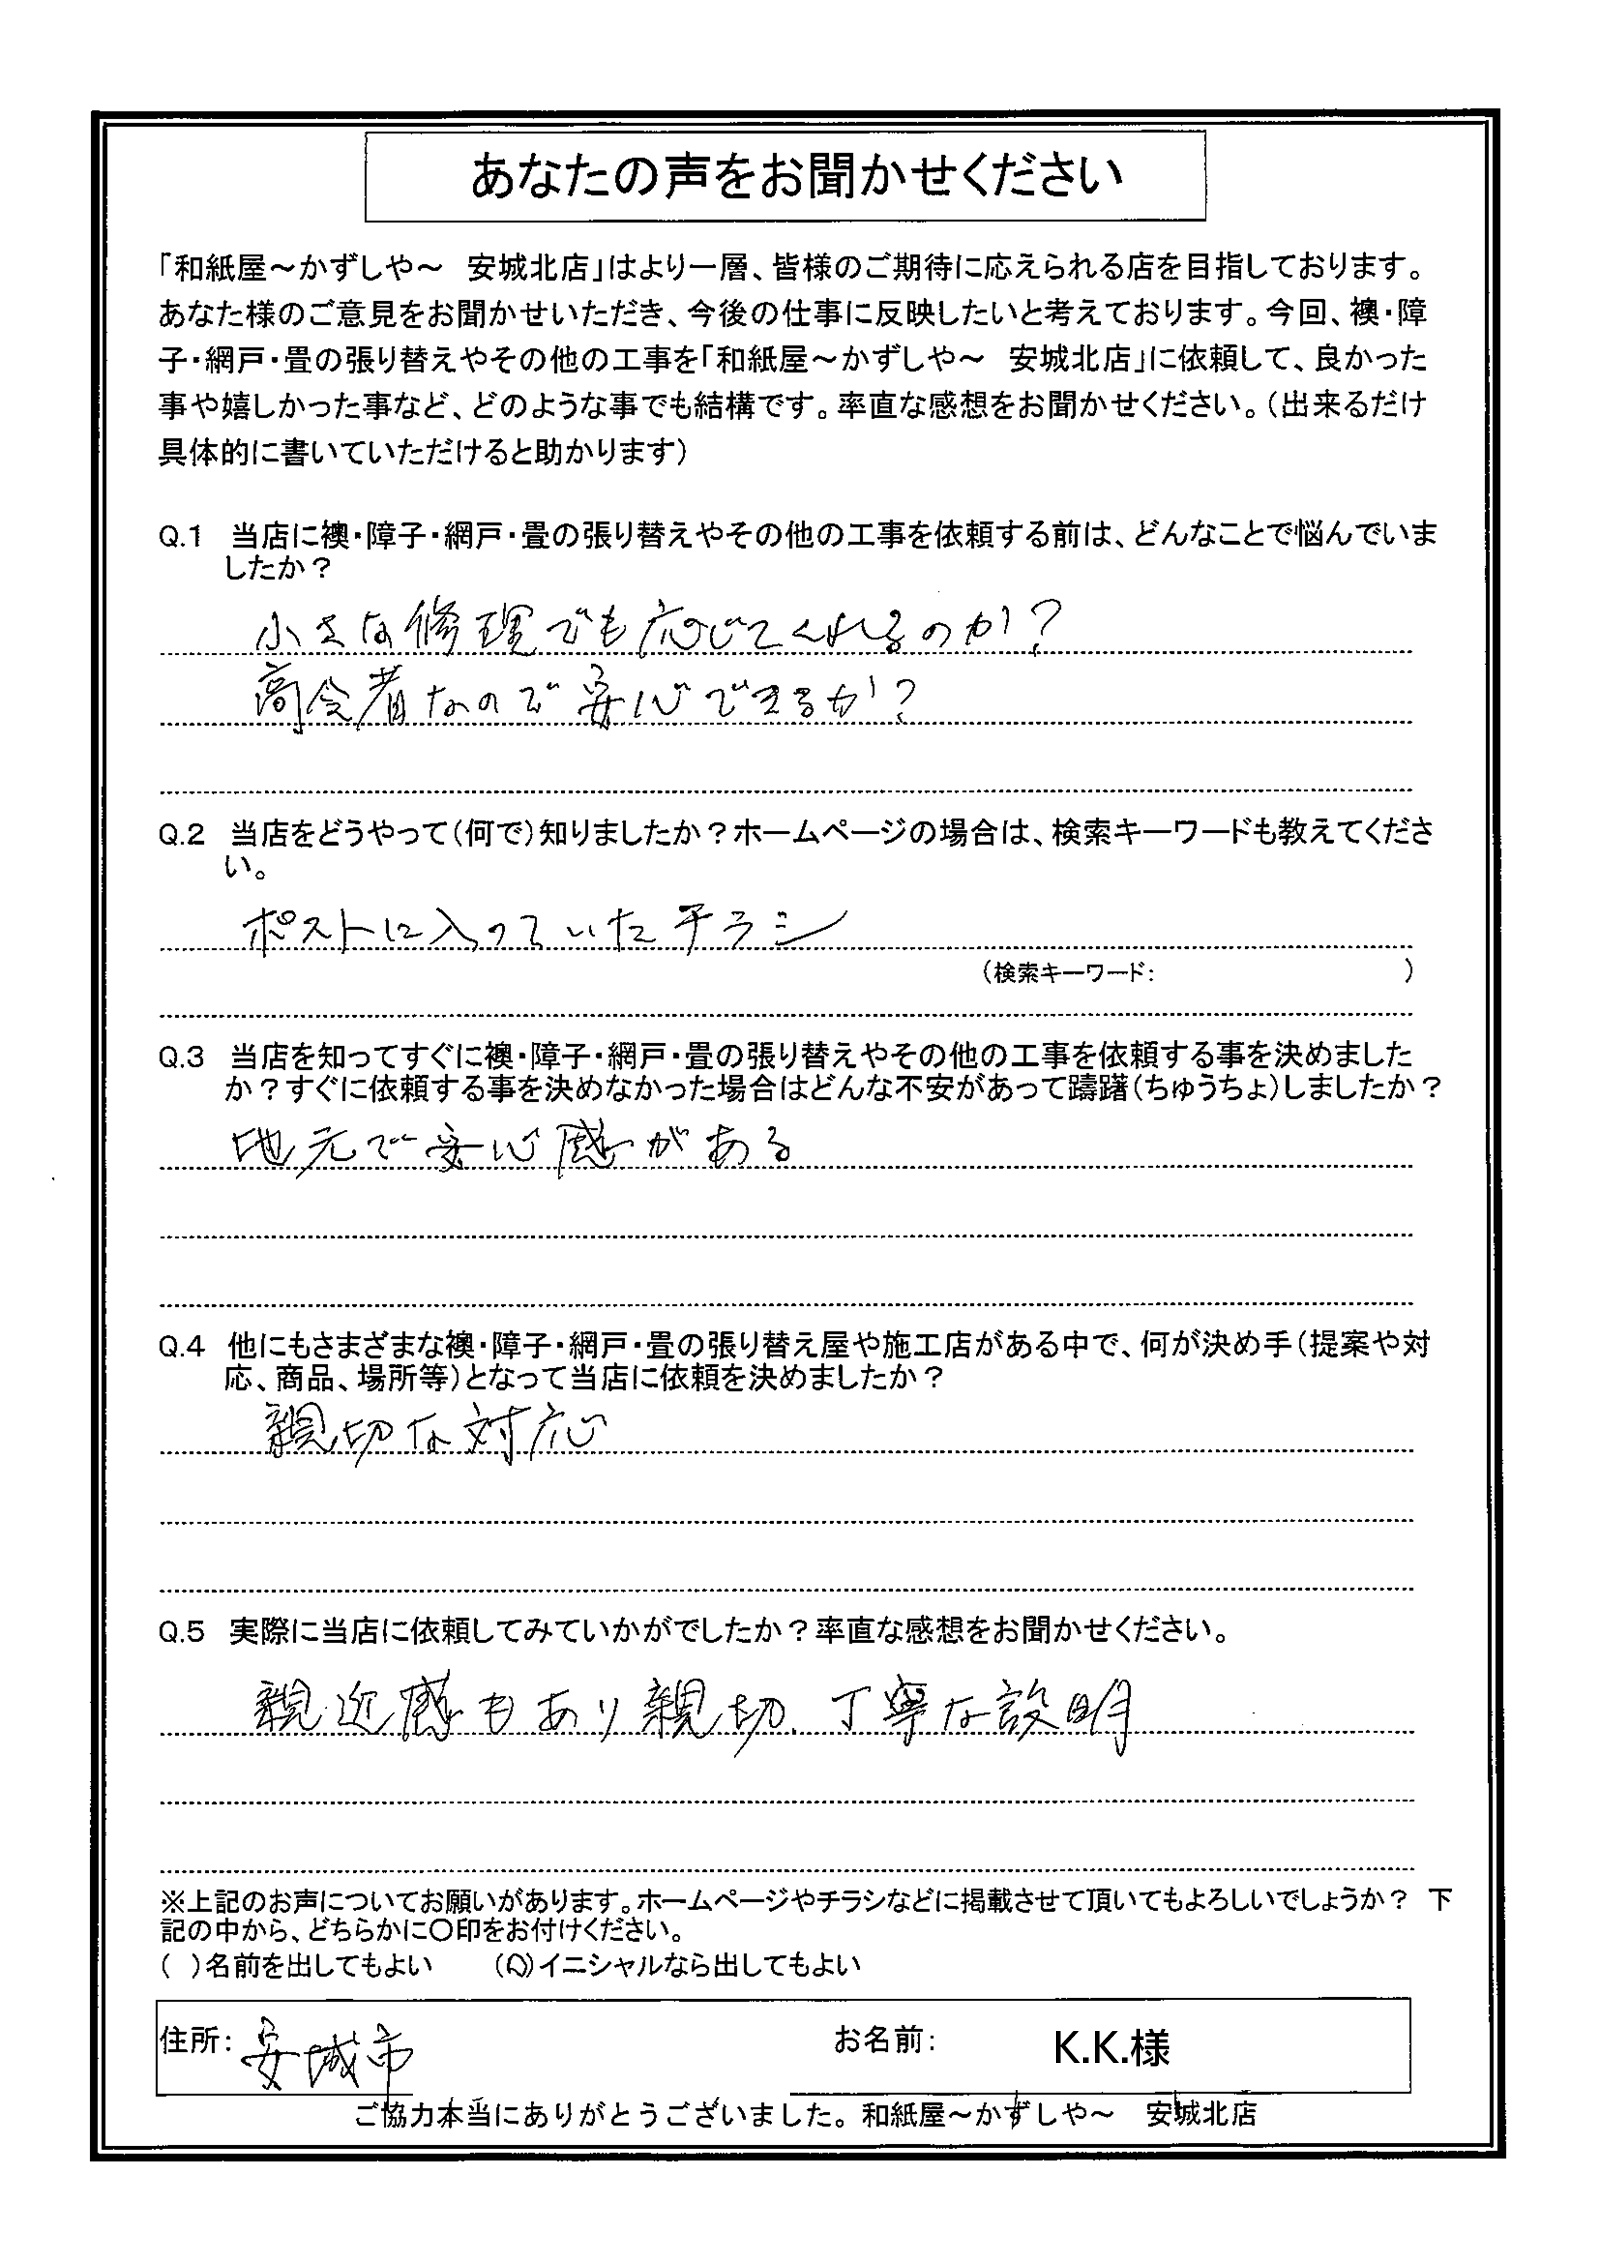 あなたの声をお聞かせください
「和紙屋～かずしや～　安城北店」はより一層、皆様のご期待に応えられる店を目指しております。
あなた様のご意見をお聞かせいただき、今後の仕事に反映したいと考えております。今回、襖・障
子・網戸・畳の張り替えやその他の工事を「和紙屋～かずしや～　安城北店」に依頼して、良かった
事や嬉しかった事など、どのような事でも結構です。率直な感想をお聞かせください。（出来るだけ
具体的に書いていただけると助かります）
Q.1　当店に襖・障子・網戸・畳の張り替えやその他の工事を依頼する前は、どんなことで悩んでいま
したか？
小さな修理でも応じてくれるのか？
高令者なので安心できるか？
Q.2　当店をどうやって（何で）知りましたか？ホームページの場合は、検索キーワードも教えてくださ
い。
ポストに入っていたチラシ
（検索キーワード：　　　　　　　　　）
Q.3　当店を知ってすぐに襖・障子・網戸・畳の張り替えやその他の工事を依頼する事を決めました
か？すぐに依頼する事を決めなかった場合はどんな不安があって躊躇（ちゅうちょ）しましたか？
地元で安心感がある
Q.4　他にもさまざまな襖・障子・網戸・畳の張り替え屋や施工店がある中で、何が決め手（提案や対
応、商品、場所等）となって当店に依頼を決めましたか？
親切な対応
Q.5　実際に当店に依頼してみていかがでしたか？率直な感想をお聞かせください。
親近感もあり親切、丁寧な説明
※上記のお声についてお願いがあります。ホームページやチラシなどに掲載させて頂いてもよろしいでしょうか？　下
記の中から、どちらかに〇印をお付けください。
（　）名前を出してもよい　　（〇）イニシャルなら出してもよい
住所：安城市　　お名前：　K.K.様
ご協力本当にありがとうございました。和紙屋～かずしや～　安城北店